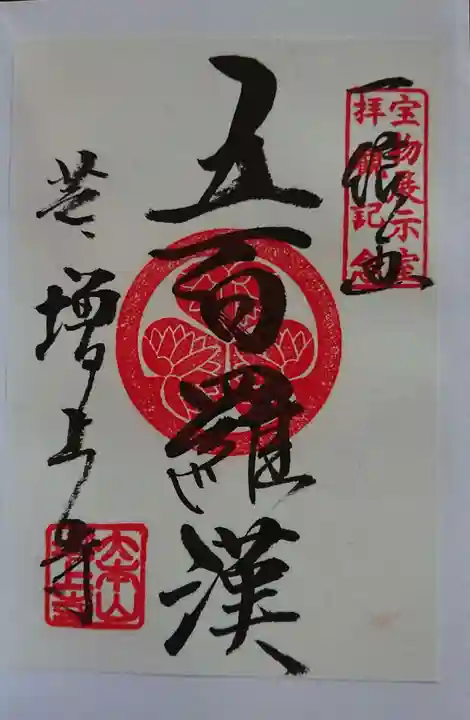 一信画
宝物展示室
拝観記念
五百羅漢
芝 増上寺
大本山
増上寺